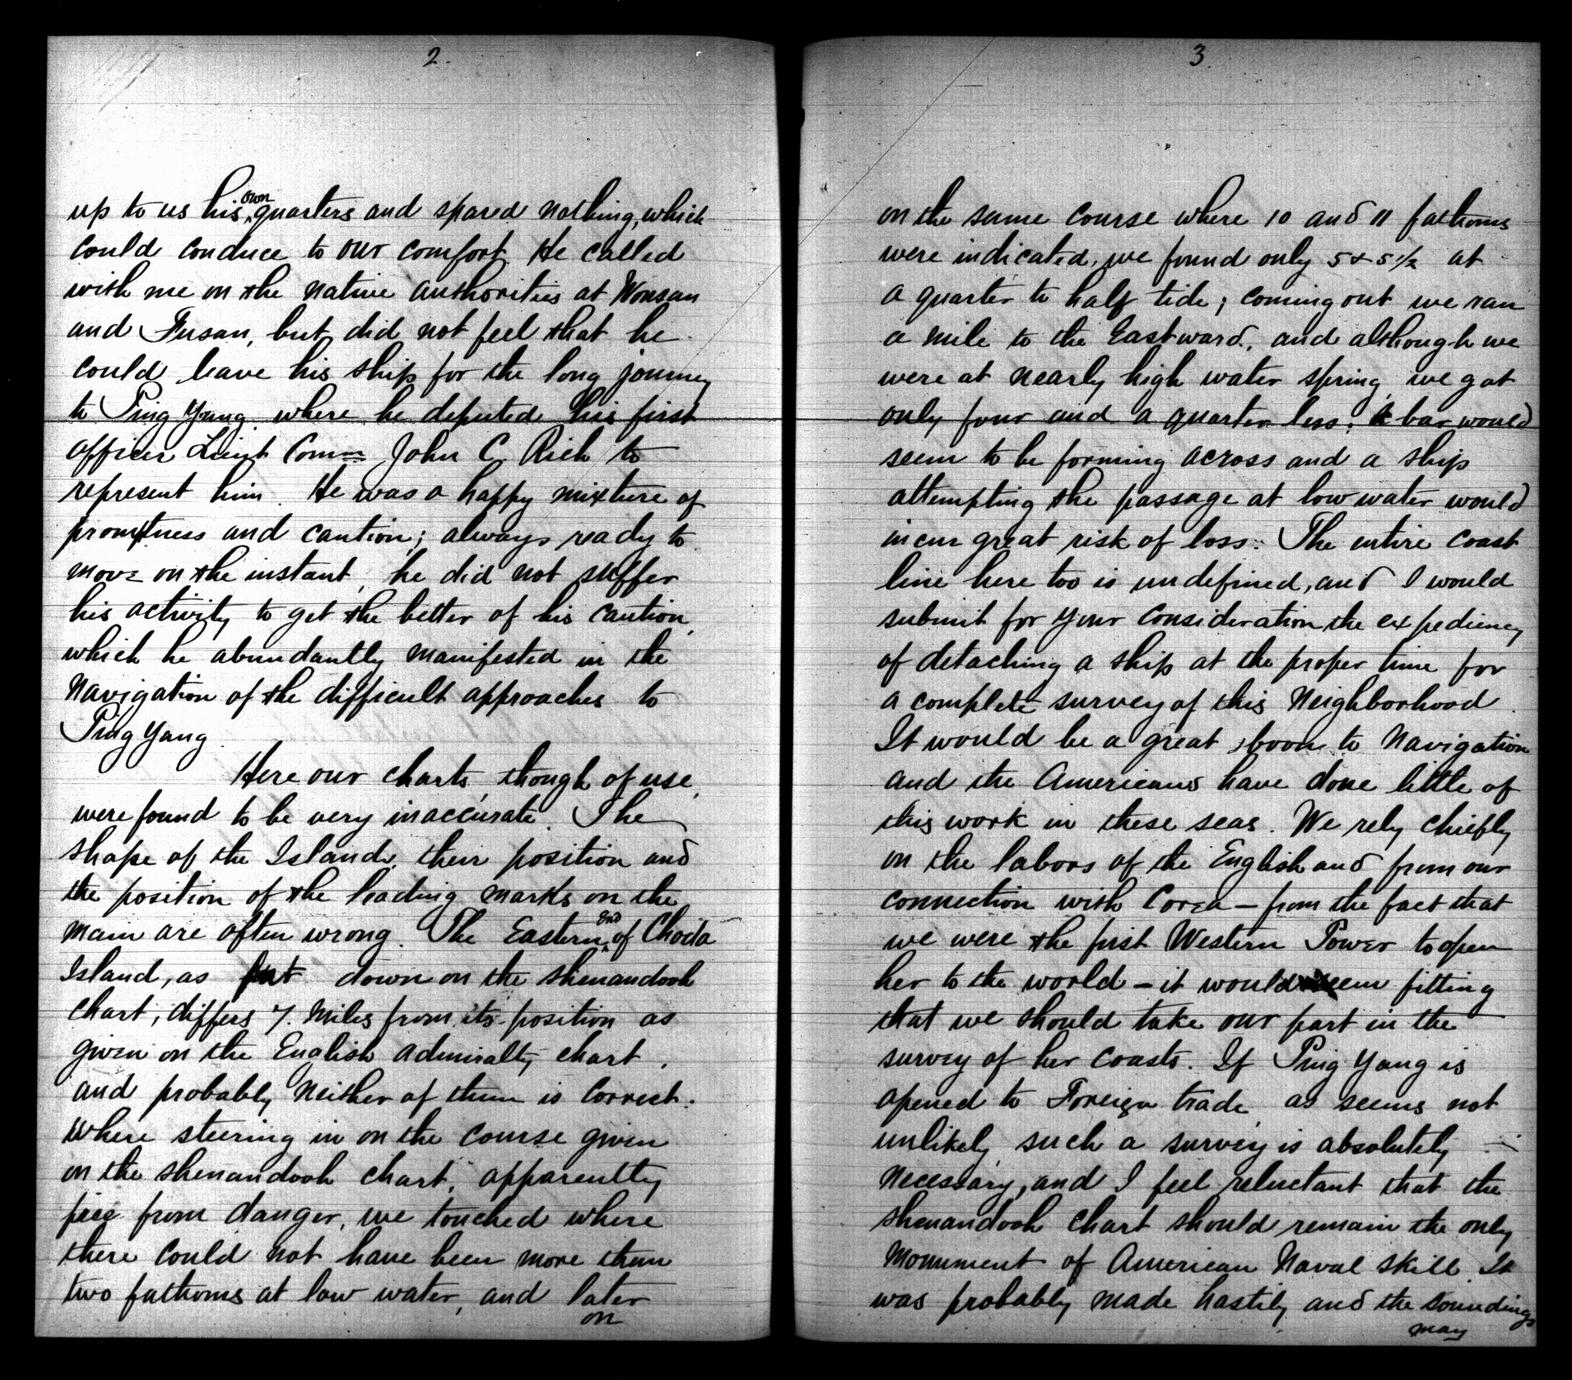 2.
up to us his own quarters and spared nothing, which
could conduce to our comfort. He called
with me on the native authorities at Wonsan
and Fusan, but did not feel that he
could leave his ship for the long journey
to Ping Yang where he deputed his first
officer Lieut Comm John C. Rich to
represent him. He was a happy mixture of
promptness and caution; always ready to
move on the instant, he did not suffer
his activity to get the better of his caution,
which he abundantly manifested in the
navigation of the difficult approaches to
Ping Yang.
Here our charts, though of use,
were found to be very inaccurate. The
shape of the Island, their position and
the position of the leading marks on the
main are often wrong. The Eastern end of Choda
Island, as put down on the Shenandoah
chart, differs 7. miles from its position as
given on the English Admiralty chart,
and probably neither of them is correct.
Where steering in on the course given
on the Shenandoah chart, apparently
free from danger, we touched where
there could not have been more than
two fathoms at low water, and later
on
3
on the same course where 10 and 11 fathoms
were indicated, we found only 5 & 5 1/2 at
a quarter to half tide; coming out we ran
a mile to the Eastward, and although we
were at nearly high water spring, we got
only four and a quarter less; a bar would
seem to be forming across and a ship
attempting the passage at low water would
incur great risk of loss. The entire coast
line here too is undefined, and I would
submit for your consideration the expediency
of detaching a ship at the proper time for
a complete survey of this neighborhood.
It would be a great boon to navigation
and the Americans have done little of
this work in these seas. We rely chiefly
on the labors of the English and from our
connection with Corea — from the fact that
we were the first Western Power to open
her to the world — it would seem fitting
that we should take our part in the
survey of her coasts. If Ping Yang is
opened to Foreign trade as seems not
unlikely, such a survey is absolutely
necessary, and I feel reluctant that the
Shenandoah chart should remain the only
monument of American Naval skill. It
was probably made hastily and the soundings
may